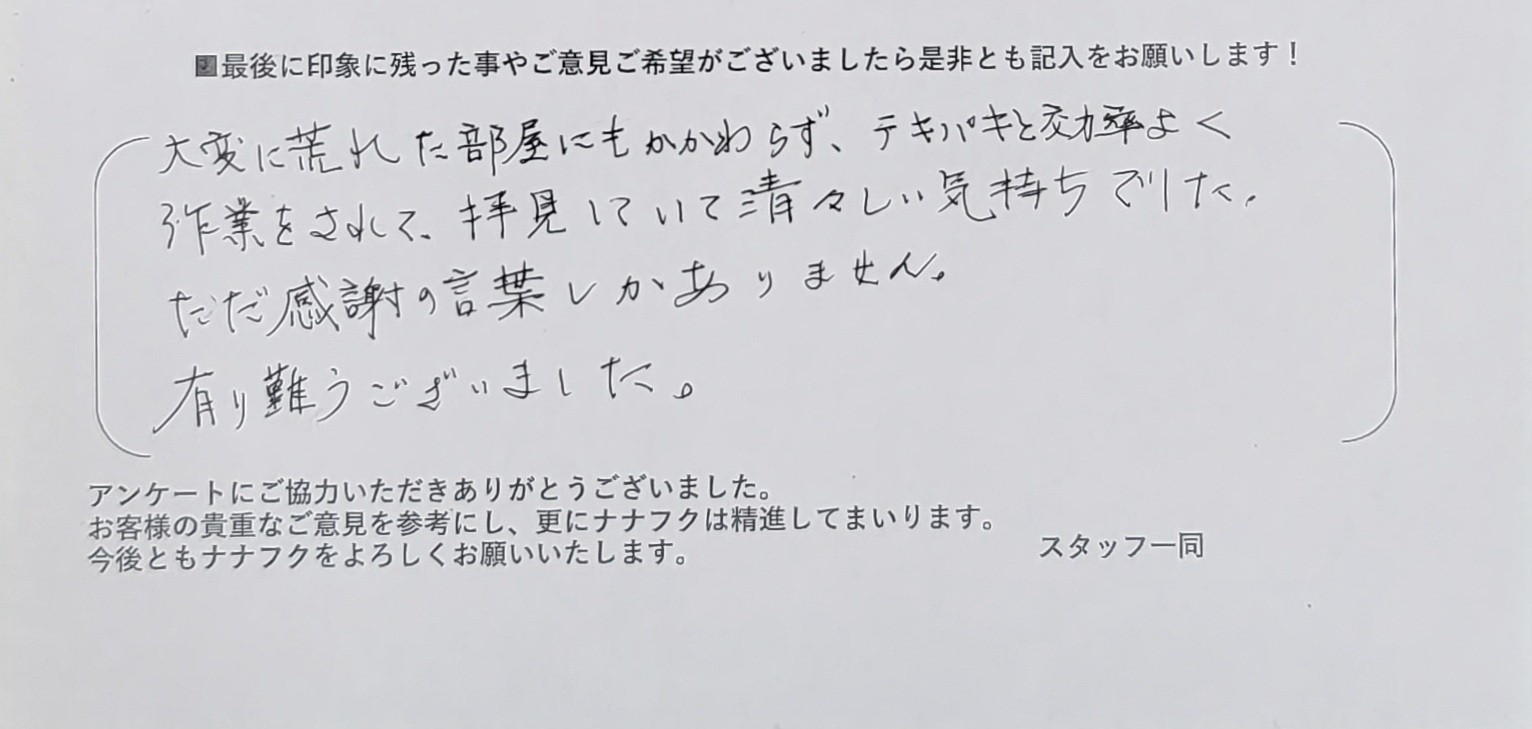 最後に印象に残った事やご意見ご希望がございましたら是非とも記入をお願いします！
大変に荒れた部屋にもかかわらず、テキパキと効率よく
作業をされて、拝見していて清々しい気持ちでした。
ただ感謝の言葉しかありません。
有り難うございました。
アンケートにご協力いただきありがとうございました。
お客様の貴重なご意見を参考にし、更にナナフクは精進してまいります。
今後ともナナフクをよろしくお願いいたします。
スタッフ一同